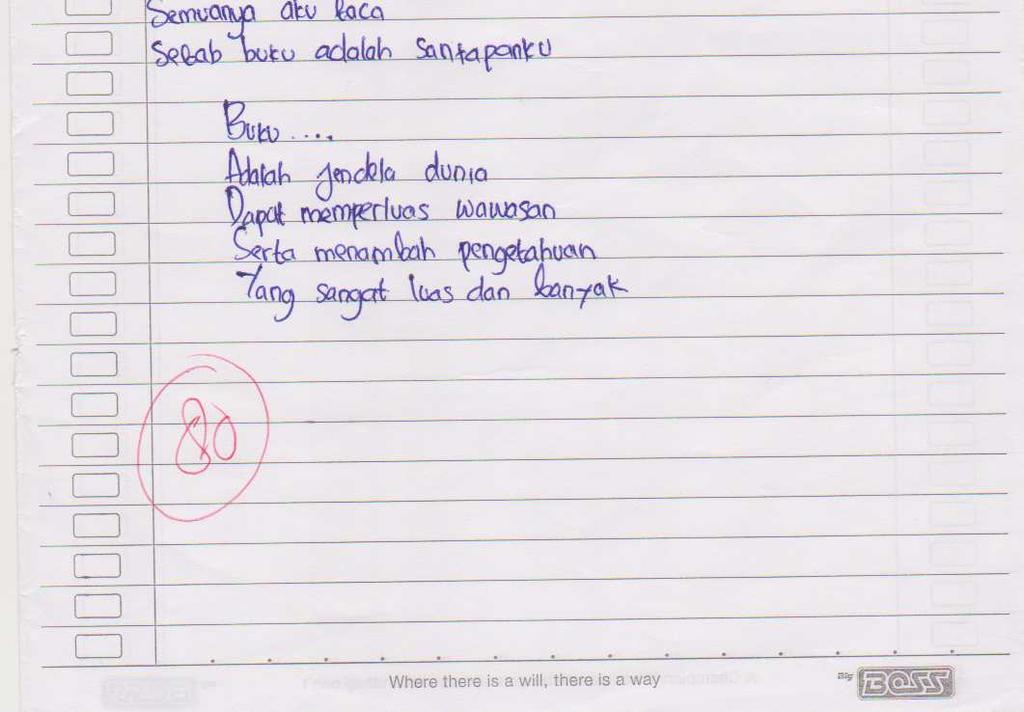 Semuanya aku baca
Sebab buku adalah santapanku
Buku ....
Adalah jendela dunia
Dapat memperluas wawasan
Serta menambah pengetahuan
Yang sangat luas dan banyak
80
Where there is a will, there is a way
Big BOSS